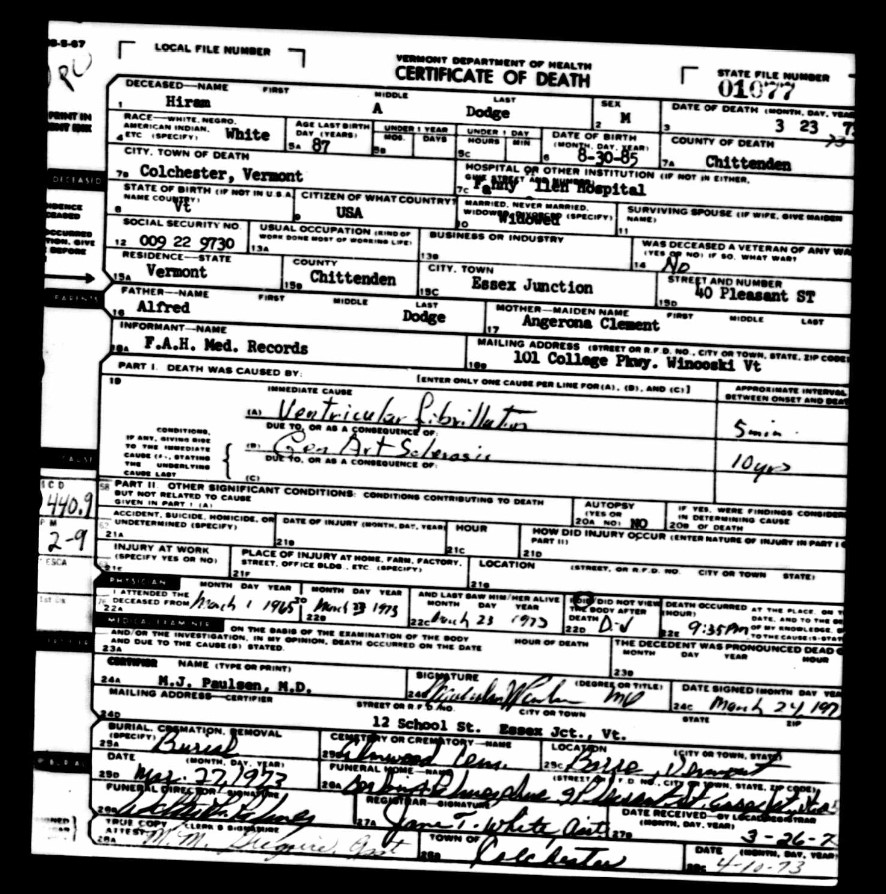 LOCAL FILE NUMBER
VERMONT DEPARTMENT OF HEALTH
CERTIFICATE OF DEATH
STATE FILE NUMBER
01077
DECEASED—NAME FIRST MIDDLE LAST SEX DATE OF DEATH (MONTH, DAY, YEAR
1 Hiram A Dodge 2 M 3 3 23 73
RACE—WHITE, NEGRO, AMERICAN INDIAN, ETC (SPECIFY) AGE LAST BIRTH DAY (YEARS) UNDER 1 YEAR UNDER 1 DAY DATE OF BIRTH (MONTH, DAY, YEAR) COUNTY OF DEATH
4 White 5A 87 5B MOS. DAYS 5C HOURS MIN 6 8-30-85 7A Chittenden
CITY, TOWN OF DEATH HOSPITAL OR OTHER INSTITUTION (IF NOT IN EITHER, GIVE STREET AND NUMBER)
7B Colchester, Vermont 7C Fanny llen Hospital
STATE OF BIRTH (IF NOT IN U.S.A. NAME COUNTRY) CITIZEN OF WHAT COUNTRY MARRIED, NEVER MARRIED, WIDOWED, DIVORCED (SPECIFY) SURVIVING SPOUSE (IF WIFE, GIVE MAIDEN NAME)
8 Vt 9 USA 10 Widowed 11
SOCIAL SECURITY NO. USUAL OCCUPATION (KIND OF WORK DONE MOST OF WORKING LIFE) BUSINESS OR INDUSTRY WAS DECEASED A VETERAN OF ANY WA
(YES OR NO) IF SO, WHAT WAR?
12 009 22 9730 13A 13B 14 No
RESIDENCE—STATE COUNTY CITY, TOWN STREET AND NUMBER
15A Vermont 15B Chittenden 15C Essex Junction 15D 40 Pleasant ST
FATHER—NAME FIRST MIDDLE LAST MOTHER—MAIDEN NAME FIRST MIDDLE LAST
16 Alfred Dodge 17 Angerona Clement
INFORMANT—NAME MAILING ADDRESS (STREET OR R.F.D. NO., CITY OR TOWN, STATE, ZIP CODE)
18A F.A.H. Med. Records 18B 101 College Pkwy. Winooski Vt
PART I. DEATH WAS CAUSED BY: [ENTER ONLY ONE CAUSE PER LINE FOR (A), (B), AND (C)] APPROXIMATE INTERVAL BETWEEN ONSET AND DEA
19 IMMEDIATE CAUSE
(A) Ventricular fibrillation 5 min.
DUE TO, OR AS A CONSEQUENCE OF:
CONDITIONS, IF ANY, GIVING RISE TO THE IMMEDIATE CAUSE (A), STATING THE UNDERLYING CAUSE LAST
(B) Gen Art Sclerosis 10 yrs
DUE TO, OR AS A CONSEQUENCE OF:
(C)
PART II. OTHER SIGNIFICANT CONDITIONS: CONDITIONS CONTRIBUTING TO DEATH BUT NOT RELATED TO CAUSE GIVEN IN PART I (A)
AUTOPSY (YES OR NO) 20A NO IF YES, WERE FINDINGS CONSIDER IN DETERMINING CAUSE OF DEATH 20B
440.9
2-9
ACCIDENT, SUICIDE, HOMICIDE, OR UNDETERMINED (SPECIFY) DATE OF INJURY (MONTH, DAY, YEAR) HOUR HOW DID INJURY OCCUR (ENTER NATURE OF INJURY IN PART I O PART II)
21A 21B 21C 21D
INJURY AT WORK (SPECIFY YES OR NO) PLACE OF INJURY AT HOME, FARM, FACTORY, STREET, OFFICE BLDG., ETC. (SPECIFY) LOCATION (STREET, OR R.F.D. NO. CITY OR TOWN STATE)
21E 21F 21G
PHYSICIAN
I ATTENDED THE DECEASED FROM MONTH DAY YEAR TO MONTH DAY YEAR AND LAST SAW HIM/HER ALIVE MONTH DAY YEAR DID/DID NOT VIEW THE BODY AFTER DEATH DEATH OCCURRED (HOUR) AT THE PLACE, ON T DATE, AND TO THE B OF MY KNOWLEDGE, TO THE CAUSE(S) STAT
22A March 1 1965 22B March 23 1973 22C March 23 1973 22D Did 22E 9:35 Pm
MEDICAL EXAMINER
ON THE BASIS OF THE EXAMINATION OF THE BODY AND/OR THE INVESTIGATION, IN MY OPINION, DEATH OCCURRED ON THE DATE AND DUE TO THE CAUSE(S) STATED. HOUR OF DEATH THE DECEDENT WAS PRONOUNCED DEAD
23A 23B MONTH DAY YEAR HOUR
CERTIFIER NAME (TYPE OR PRINT) SIGNATURE (DEGREE OR TITLE) DATE SIGNED (MONTH DAY, YEA
24A M.J. Paulsen, M.D. 24B MD 24C March 24, 197
MAILING ADDRESS—CERTIFIER STREET OR R.F.D. NO. CITY OR TOWN STATE ZIP
24D 12 School St. Essex Jct., Vt.
BURIAL, CREMATION, REMOVAL (SPECIFY) CEMETERY OR CREMATORY—NAME LOCATION (CITY OR TOWN, STATE)
25A Burial 25B Elmwood Cem. 25C Barre, Vermont
DATE (MONTH, DAY, YEAR) FUNERAL HOME—NAME (STREET OR R.F.D. NO., CITY OR TOWN, STATE, ZIP CODE)
25D Mar. 27, 1973 26A
FUNERAL DIRECTOR—SIGNATURE REGISTRAR—SIGNATURE DATE RECEIVED—BY LOCAL REGISTRAR (MONTH, DAY, YEAR)
26B 27A Jane T. White Asst 27B 3-26-7
TRUE COPY ATTEST: CLERK'S SIGNATURE TOWN OF DATE (MONTH, DAY, YEAR)
28A M. M. Asst 28B Colchester 28C 4-10-73